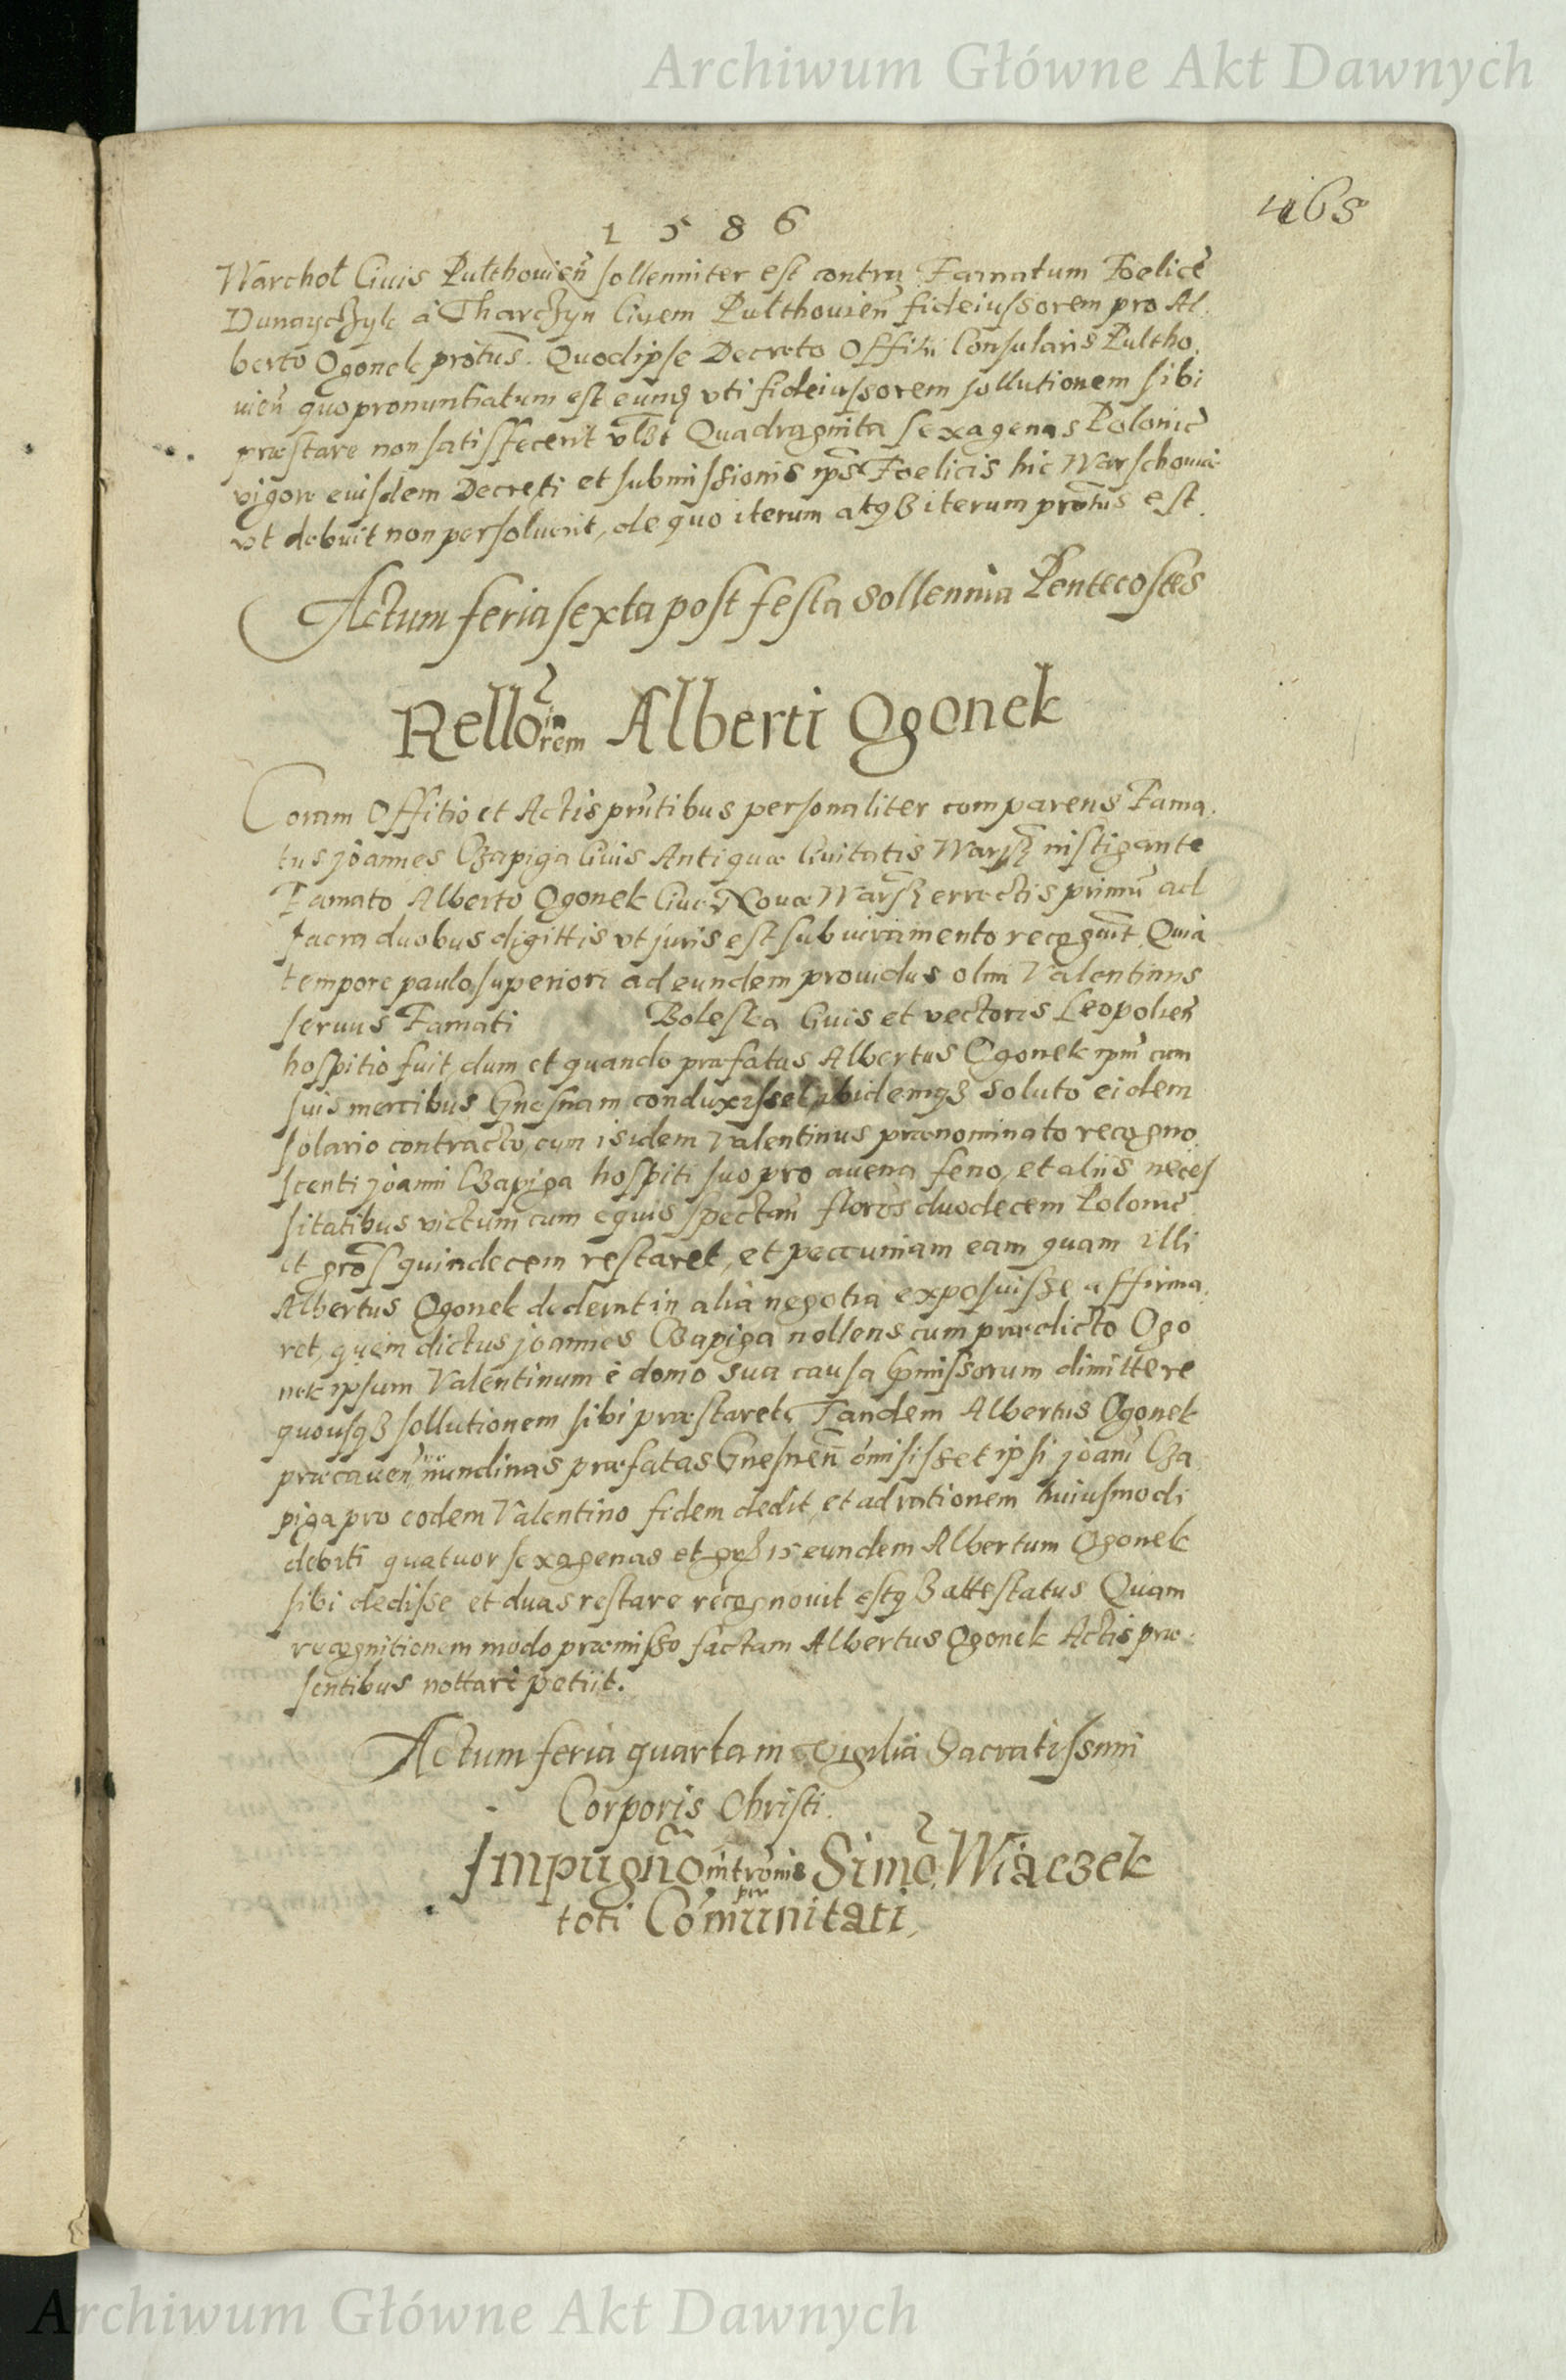 Archiwum Główne Akt Dawnych
465
1 5 8 6
Warchoł Ciuis Pulthouien̄ sollenniter est contra Famatum Foelicē
Dunayczyk á Tharczyn Ciuem Pulthouien̄ fideiussorem pro Al
berto Ogonek prōtus. Quod ipse Decreto Offitii Consularis Pultho
uien̄ quo pronuntiatum est eumq3 vti fideiussorem sollutionem sibi
præstare non satisfecerit Quadraginta sexagenas Polonic̄
vigore eiusdem Decreti et submissionis ips̄ Foelicis hic Warschouiæ
vt debuit non persoluerit, de quo iterum atq3 iterum prōtus est.
Actum feria sexta post festa sollennia Pentecostes
Rellō Alberti Ogonek
rem
Coram Offitio et Actis prn̄tibus personaliter comparens Fama
tus joannes Czapiga Ciuis Antiquæ Ciuitatis Warsz instigante
Famato Alberto Ogonek Ciue Nouæ Warsz errectis primū ad
sacra duobus digittis vt juris est sub iuramento recognuit Quia
tempore paulo superiori ad eundem prouidus olim Valentinus
seruus Famati Boleska Ciuis et vectoris Leopolien̄
hospitio fuit dum et quando præfatus Albertus Ogonek ipm̄ cum
suis mercibus Gnesnam conduxisset, ibidemq3 soluto eidem
solario contracto, cum isidem Valentinus prænominato recogno
scenti joanni Czapiga hospiti suo pro auena feno, et aliis neces
sitatibus victum cum equis spectan̄ floros duodecem Polonic̄
et gros̄ quindecem restaret, et peccuniam eam quam illi
Albertus Ogonek dederat in alia negotia exposuisse affirma
ret, quem dictus joannes Czapiga nollens cum prædicto Ogo
nek ipsum Valentinum é domo sua causa pmissorum dimittere
quousq3 sollutionem sibi præstaret, Tandem Albertus Ogonek
præcauen̄ nundinas præfatas Gnesnen̄ ómisisset ipsi joani Cza
piga pro eodem Valentino fidem dedit, et ad rationem huiusmodi
debiti quatuor sexagenas et 15 eundem Albertum Ogonek
sibi dedisse et duas restare recognouit estq3 attestatus Quam
recognitionem modo præmisso factam Albertus Ogonek Actis præ
sentibus nottari petiit.
Actum feria quarta in vigilia Sacratissimi
Corporis Christi.
Impugnō Simō Wiączek
per
toti Cōmunitati
Archiwum Główne Akt Dawnych